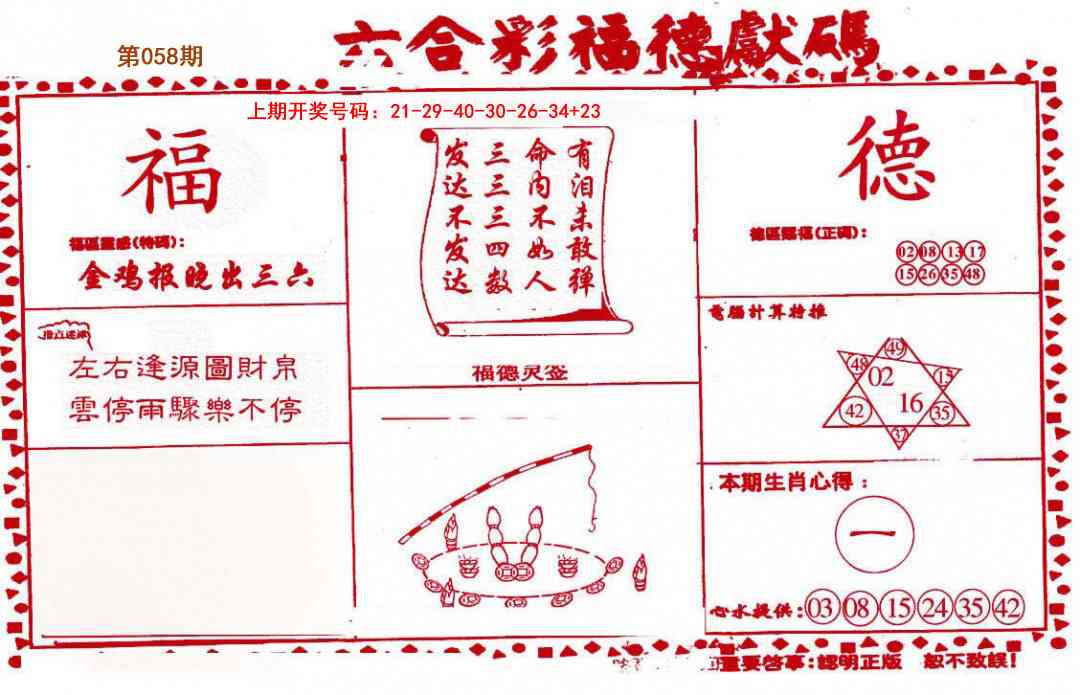 六合彩福德獻碼
第058期
上期开奖号码：21-29-40-30-26-34+23
福
福區靈感(特碼):
金鸡报晚出三六
左右逢源圖財帛
雲停雨驟樂不停
有泪未敢弹
命内不如人
三三三四数
发达不发达
福德灵签
德
德區賜福(正碼):
02 08 13 17
15 26 35 48
電腦計算特推
49
48 02 15
42 16 35
37
本期生肖心得：
一
心水提供:03 08 15 24 35 42
重要啓事:認明正版 恕不致誤!